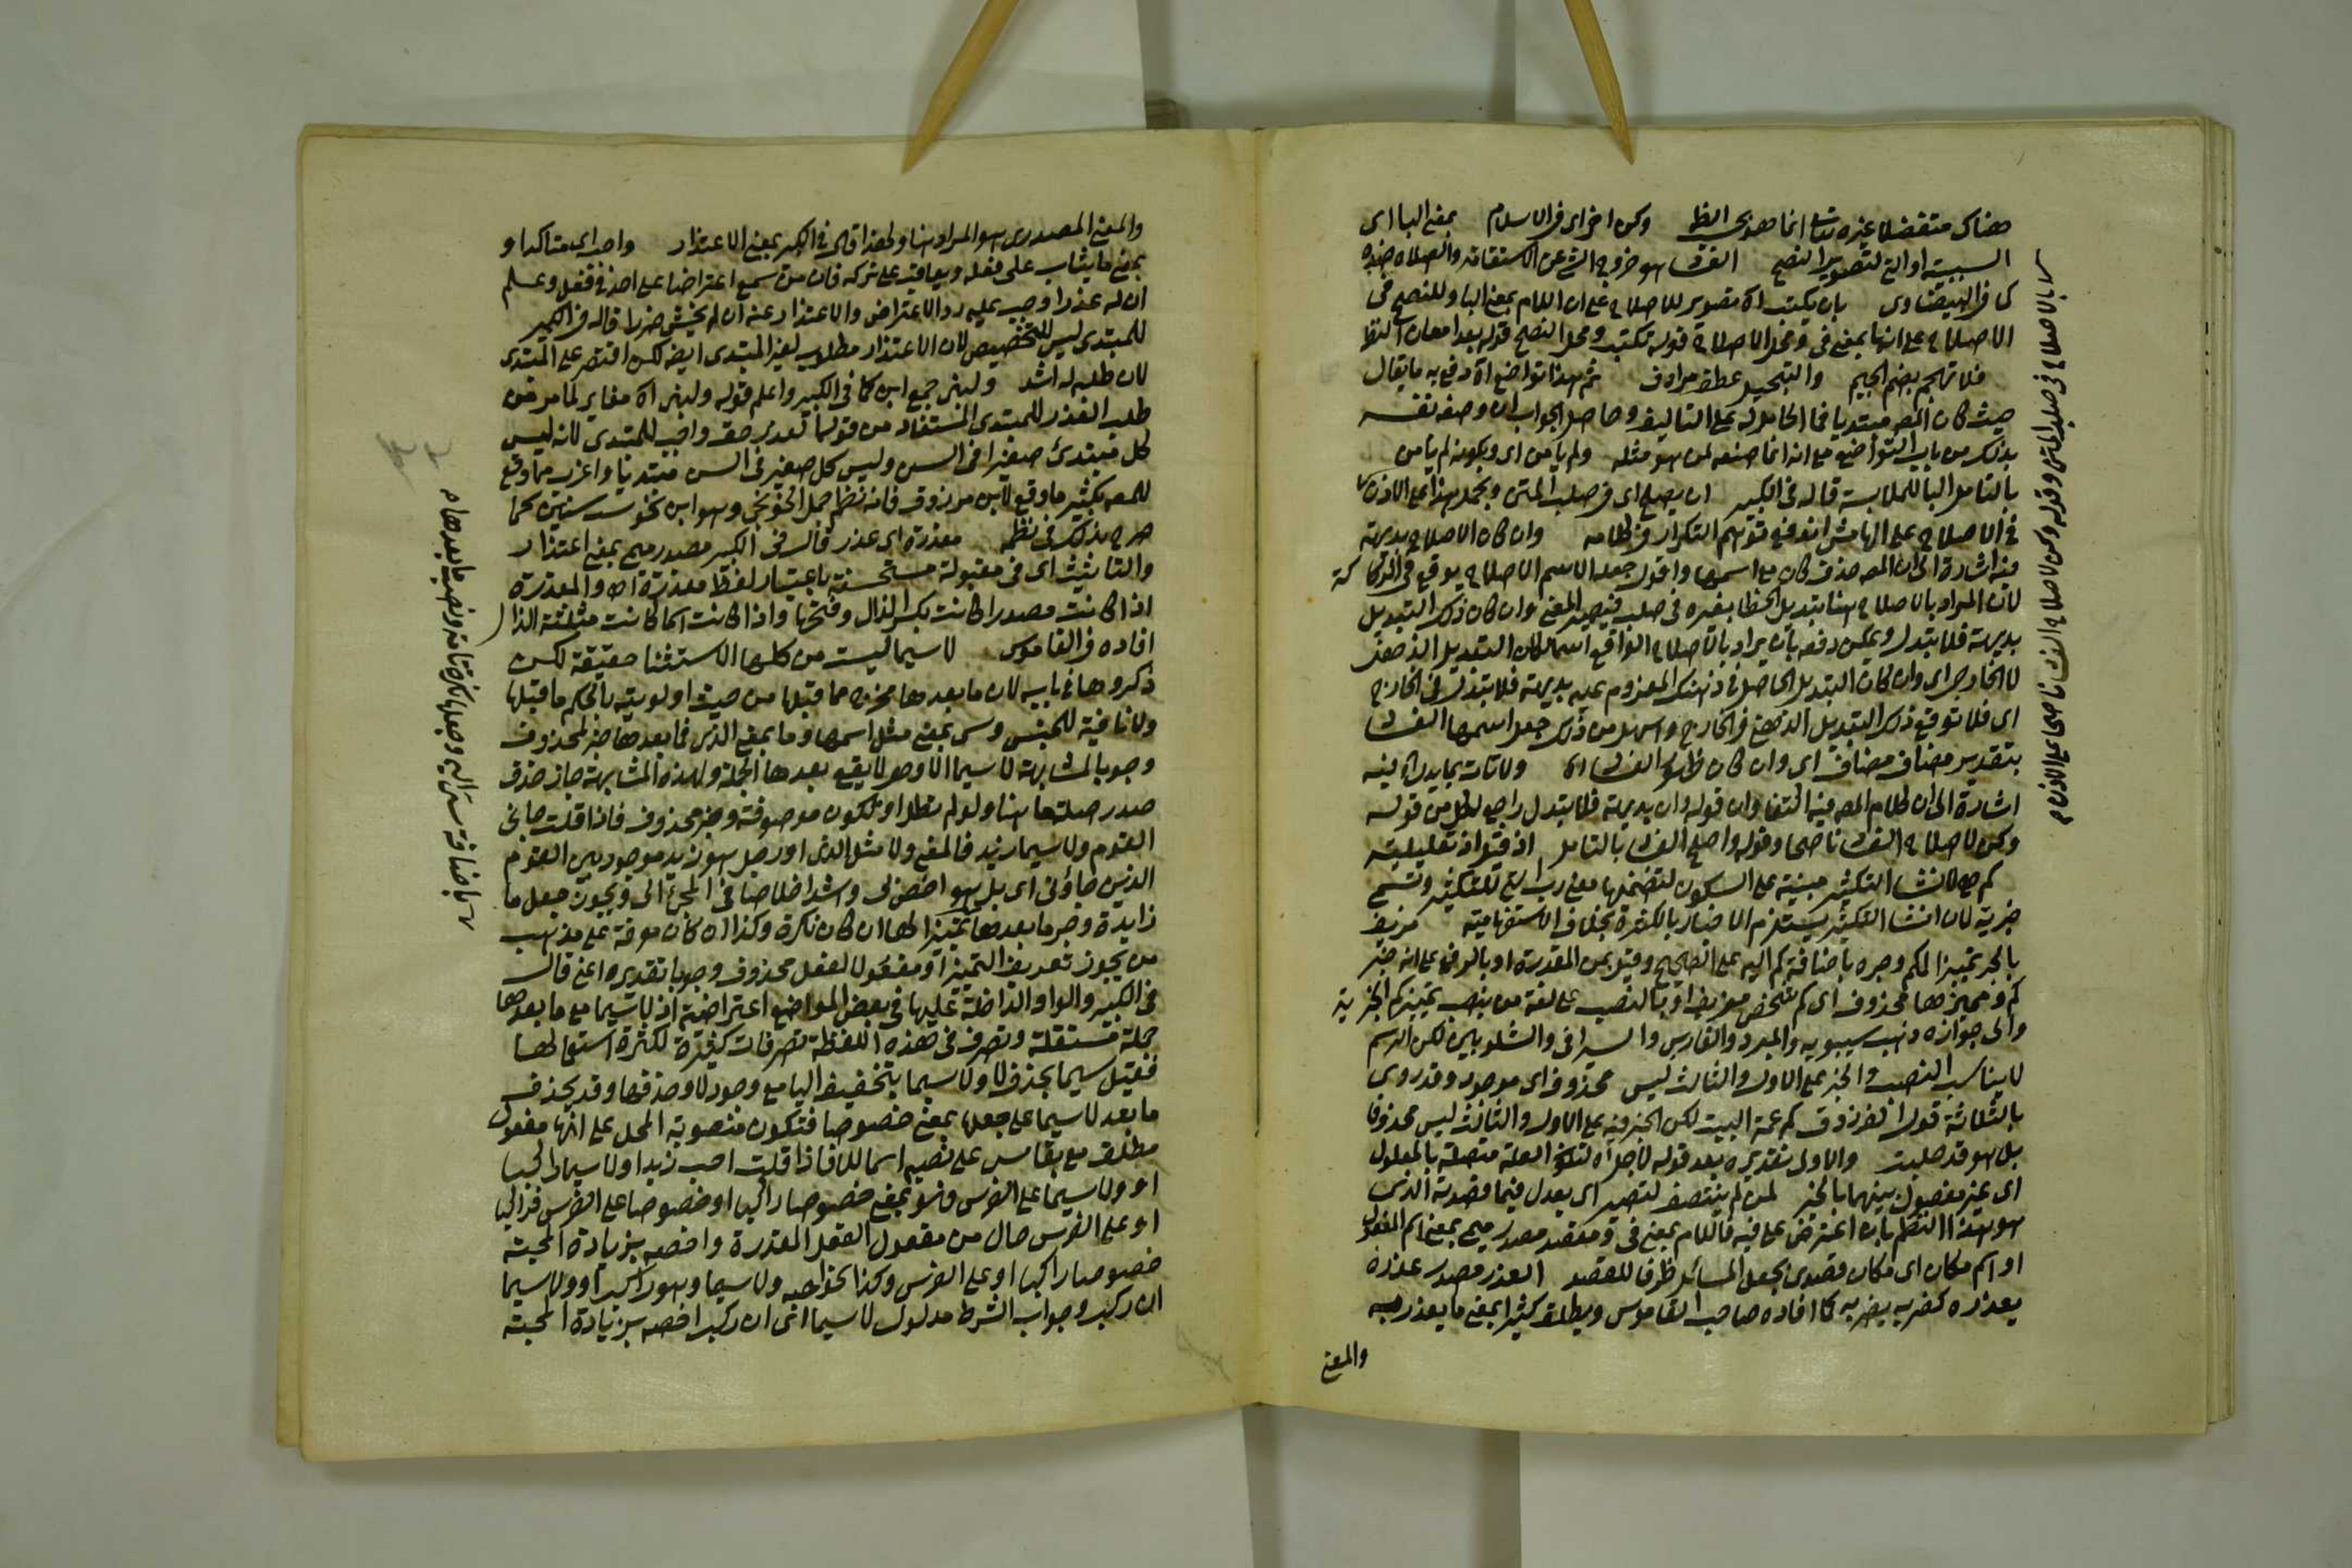 هناك متفضلا غيره تدبع انما هو بحسب الظ وكن اخي اى فى الاسلام بمعنى البا اى
السببية او التى لتصوير النصح الفسا هو خروج الشئ عن الاستقامة والصلاح ضده
كما فى البيضاوى بان يكتب اه تصوير للاصلاح على ان اللام بمعنى البا وللنصح فى
الاصلاح على انها بمعنى فى ومحل الاصلاح قوله يكتب ومحل النصح قوله بعد امعان النظ
فلا تهجم بضم الجيم والتبجيل عطف مرادف ثم هذا تواضع اه دفع به ما يقال
حيث كان المصـ مبتديا فما الحامل له على التاليف وحاصل الجواب ان وصفه نفسه
بذلك من باب التواضع مع انه انما صنفه لمن هو مثله ولم يامن اى وبكونه لم يامن
بالتامل البا للملابسة قاله فى الكبير ان يصلح اى فى صلب المتن ويحمل هذا على الاذن
فى الاصلاح على الهامش اندفع توهم التكرار فى كلامه وان كان الاصلاح بديهة
فيه اشارة الى ان المصـ حذف كان مع اسمها واقول جعل الاسم الاصلاح يوقع فى الركاكة
لان المراد بالاصلاح هنا تبديل الخطا بغيره فى صلب فيصير المعنى وان كان ذلك التبديل
بديهة فلا يتبدل ويمكن دفعه بان يراد بالاصلاح الواقع اسما لكان التبديل الذهنى
لا الخارجى اى وان كان التبديل الحاصل فى ذهنك المعزوم عليه بديهة فلا يتبدل فى الخارج
اى فلا توقع ذلك التبديل الذهنى فى الخارج واسهل من ذلك جعل اسمها الفسا
بتقدير مضاف مضاف اى وان كان ظهور الفساد اه ولا تات بما يدل الى لينه
اشارة الى ان كلام المصـ فيه اكتفا وان قوله وان بديهة فلا يتبدل راجع لكل من قوله
وكن لاصلاح الفسا ناصحا وقوله واصلح الفسا بالتامل اذ قيل اذ تعليلية
كم هى لانشا التكثير مبنية على السكون لتضمنها معنى رب التى للتكثير وتسمى
خبرية لان انشا التكثير يستلزم الاخبار بالكثرة بخلاف الاستفهامية مزيف
بالجر تمييزا لكم وجره باضافة كم اليه على الصحيح وقيل بمن المقدرة او بالرفع على انه خبر
كم ومميزها محذوف اى كم شخص مزيف او بالنصب على لغة من ينصب تمييز كم الخبرية
والى جوازه ذهب سيبويه والمبرد والفارسى والسيرافى والشلوبين لكن الرسم
لا يناسب النصب والخبر على الاول والثالث ليس محذوف اى موجود وقد روى
بالثلاثة قول الفرزدق كم عمة البيت لكن الخبر فيه على الاول والثالث ليس محذوفا
بل هو قد حلبت والاولى تقديره بعد قوله لاجل اه لتكون العلة متصلة بالمعلول
اى غير مفصول بينهما بالخبر لمن لم ينتصف لقصد اى يعدل فيما قصدته الذى
هو هذا النظم بان اعترض على فيه فاللام بمعنى فى ومقصد مصدر ميمى بمعنى اسم المفعول
او اسم مكان اى مكان قصدى بجعل المسائل ظرفا للقصد العذر مصدر عذره
يعذره كضربه يضربه كما افاده صاحب القاموس ويطلق كثيرا بمعنى ما يعذر به
والمعنى
والمعنى المصدرى هو المراد هنا ولهذا قال فى الكبير بمعنى الاعتذار واجب اى متاكد او
بمعنى ما يثاب على فعله ويعاقب على تركه فان من سمع اعتراضا على احد فى فعل وعلم
ان له عذرا وجب عليه رد الاعتراض والاعتذار عنه ان لم يخش ضررا قاله فى الكبير
للمبتدى ليس للتخصيص لان الاعتذار مطلوب لغير المبتدى ايضا لكن اقتصر على المبتدى
لان طلبه له اشد ولبنى جمع ابن كما فى الكبير واعلم قوله ولبنى اه مغاير لما مر من
طلب العذر للمبتدى المستفاد من قوله العذر حق واجب للمبتدى لانه ليس
كل مبتدئ صغيرا فى السن وليس كل صغير فى السن مبتديا واغرب مما وقع
للمصـ بكثير ما وقع لابن مرزوق فانه نظم جمل الخونجى وهو ابن نحو ست سنين كما
صرح بذلك فى نظمه معذرة اى عذر قال فى الكبير مصدر ميمى بمعنى اعتذار
والتانيث اى فى مقبولة مستحسنة باعتبار لفظ معذرة اه والمعذرة
اذا كانت مصدرا كانت بكسر الذال وفتحها واذا كانت اسما كانت مثلثة الذال
افاده فى القاموس لا سيما ليست من كلمات الاستثنا حقيقة لكن
ذكروها فى بابه لان ما بعدها مخرج مما قبلها من حيث اولويته بالحكم ما قبلها
ولا نافية للجنس وسى بمعنى مثل اسمها وما بمعنى الذى فما بعدها خبر لمحذوف
وجوبا لمشابهة لا سيما الا وهى لا يقع بعدها الجملة ولهذه المشابهة جاز حذف
صدر صلتها هنا ولو لم تطل او نكون موصوفة وخبر محذوف فاذا قلت جانى
القوم ولا سيما زيد فالمعنى ولا مثل الذى او رجل هو زيد موجود بين القوم
الذين جاؤنى اى بل هو اخص لى واشد اخلاصا فى المجئ الى ويجوز جعل ما
زايدة وجر ما بعدها تمييزا لها ان كان نكرة وكذا ان كان معرفة على مذهب
من يجوز تعريف التمييز او مفعولا لفعل محذوف وجوبا تقديره اعنى قال
فى الكبير والواو الداخلة عليها فى بعض المواضع اعتراضية اذ لا سيما مع ما بعدها
جملة مستقلة وتصرف فى هذه اللفظة تصرفات كثيرة لكثرة استعمالها
فقيل سيما بحذف لا ولا سيما بتخفيف اليا مع وجود لا وحذفها وقد يحذف
ما بعد لا سيما على جعلها بمعنى خصوصا فتكون منصوبة المحل على انها مفعول
مطلق مع بقا سى على نصبه اسما للا فاذا قلت احب زيدا ولا سيما راكبا
او ولا سيما على الفرس فهو بمعنى خصوصا راكبا او خصوصا على الفرس فراكبا
او على الفرس حال من مفعول الفعل المقدرة واخصه بزيادة المحبة
خصوصا راكبا او على الفرس وكذا نحو احبه ولا سيما وهو راكب او ولا سيما
ان ركب وجواب الشرط مدلول لا سيما اى ان ركب اخصه بزيادة المحبة